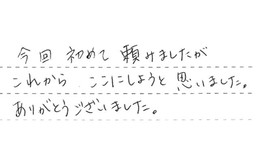 今回 初めて 頼みましたが
これから ここにしようと 思いました。
ありがとうございました。